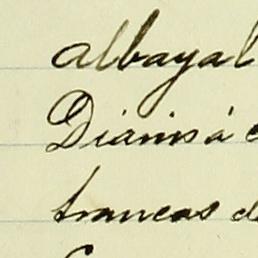 albayal
Dianis á
trancas d